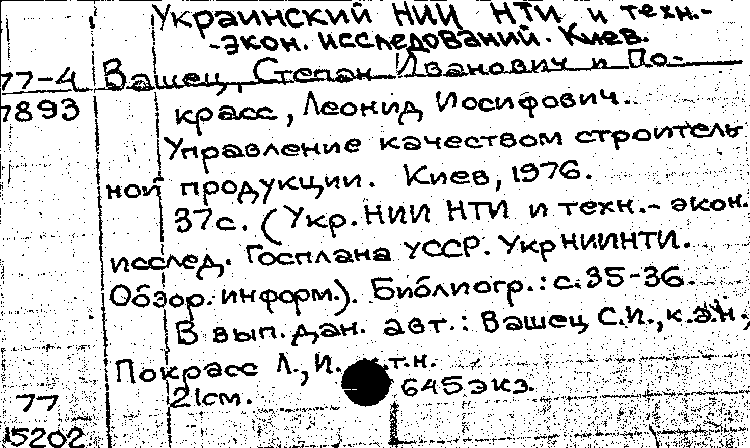 Украинский НИИ НТИ и техн.-
-экон. исследований. Киев.
77-4 Вашец, Степан Иванович и По-
7893 красс, Леонид Иосифович.
Управление качеством строитель
ной продукции. Киев, 1976.
37с. (Укр. НИИ НТИ и техн.- экон.
исслед. Госплана УССР. УкрНИИНТИ.
Обзор. информ.). Библиогр.: с. 35-36.
В вып. дан. авт.: Вашец С.И., к.э.н.,
Покрасс Л., И. к.т.н.
77 21см. 645 экз.
15202